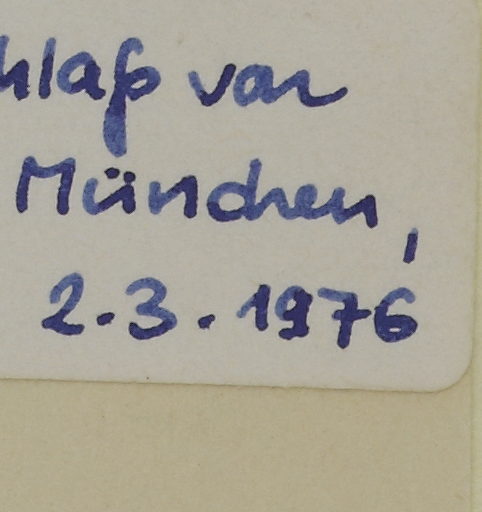 hlaß von
München,
2.3.1976